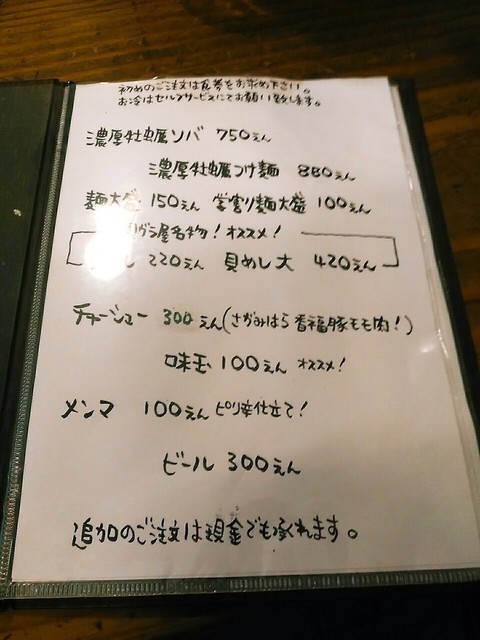 初めのご注文は食券をお求め下さい。
お冷はセルフサービスにてお願い致します。
濃厚牡蠣ソバ 750えん
濃厚牡蠣つけ麺 880えん
麺大盛 150えん 学割麺大盛 100えん
がら屋名物!オススメ!
し 220えん 貝めし大 420えん
チャーシュー 300えん(さがみはら香福豚モモ肉!)
味玉 100えん オススメ!
メンマ 100えん ピリ辛仕立て!
ビール 300えん
追加のご注文は現金でも承れます。